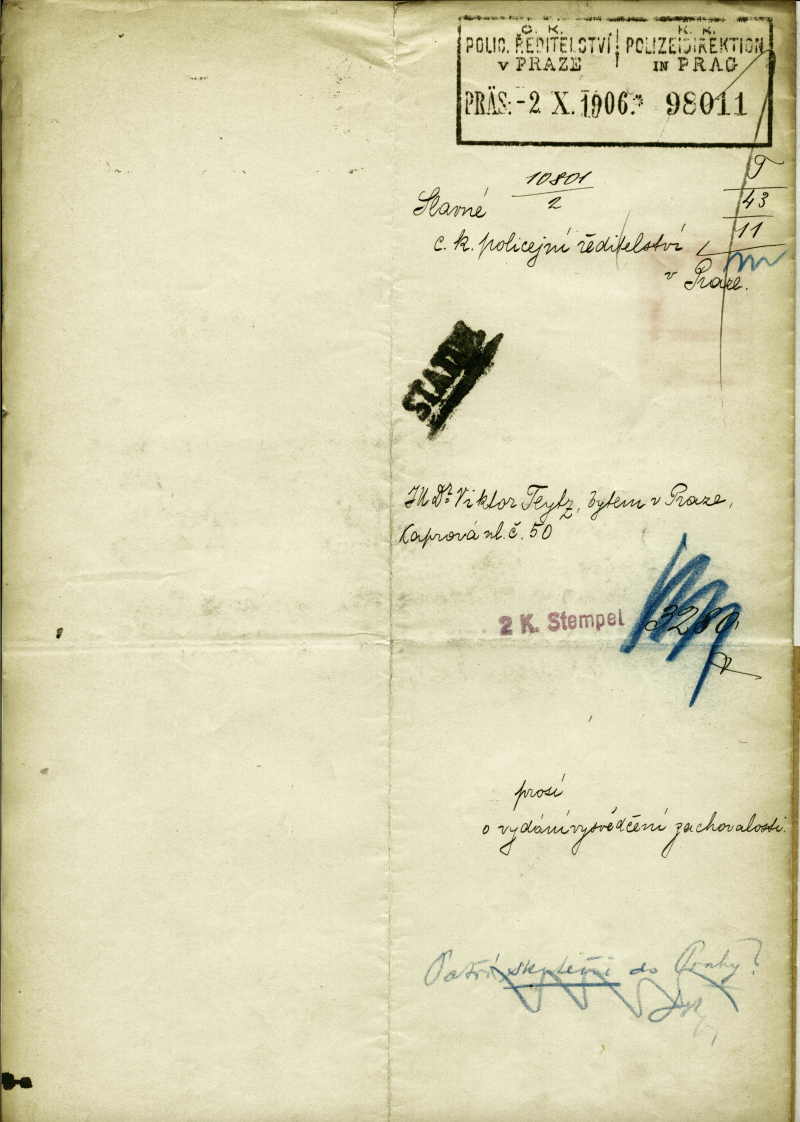 C. K. K. K.
POLIC. ŘEDITELSTVÍ POLIZEIDIREKTION
V PRAZE IN PRAG
PRÄS: -2 X. 1906.* 98011
10801
2
T
43
11
Slavné
c. k. policejní ředitelství
v Praze.
JUDr. Viktor Teytz, bytem v Praze,
Kaprová ul. č. 50
2 K. Stempel
3280
prosí
o vydání vysvědčení zachovalosti.
Patří skutečně do Prahy?